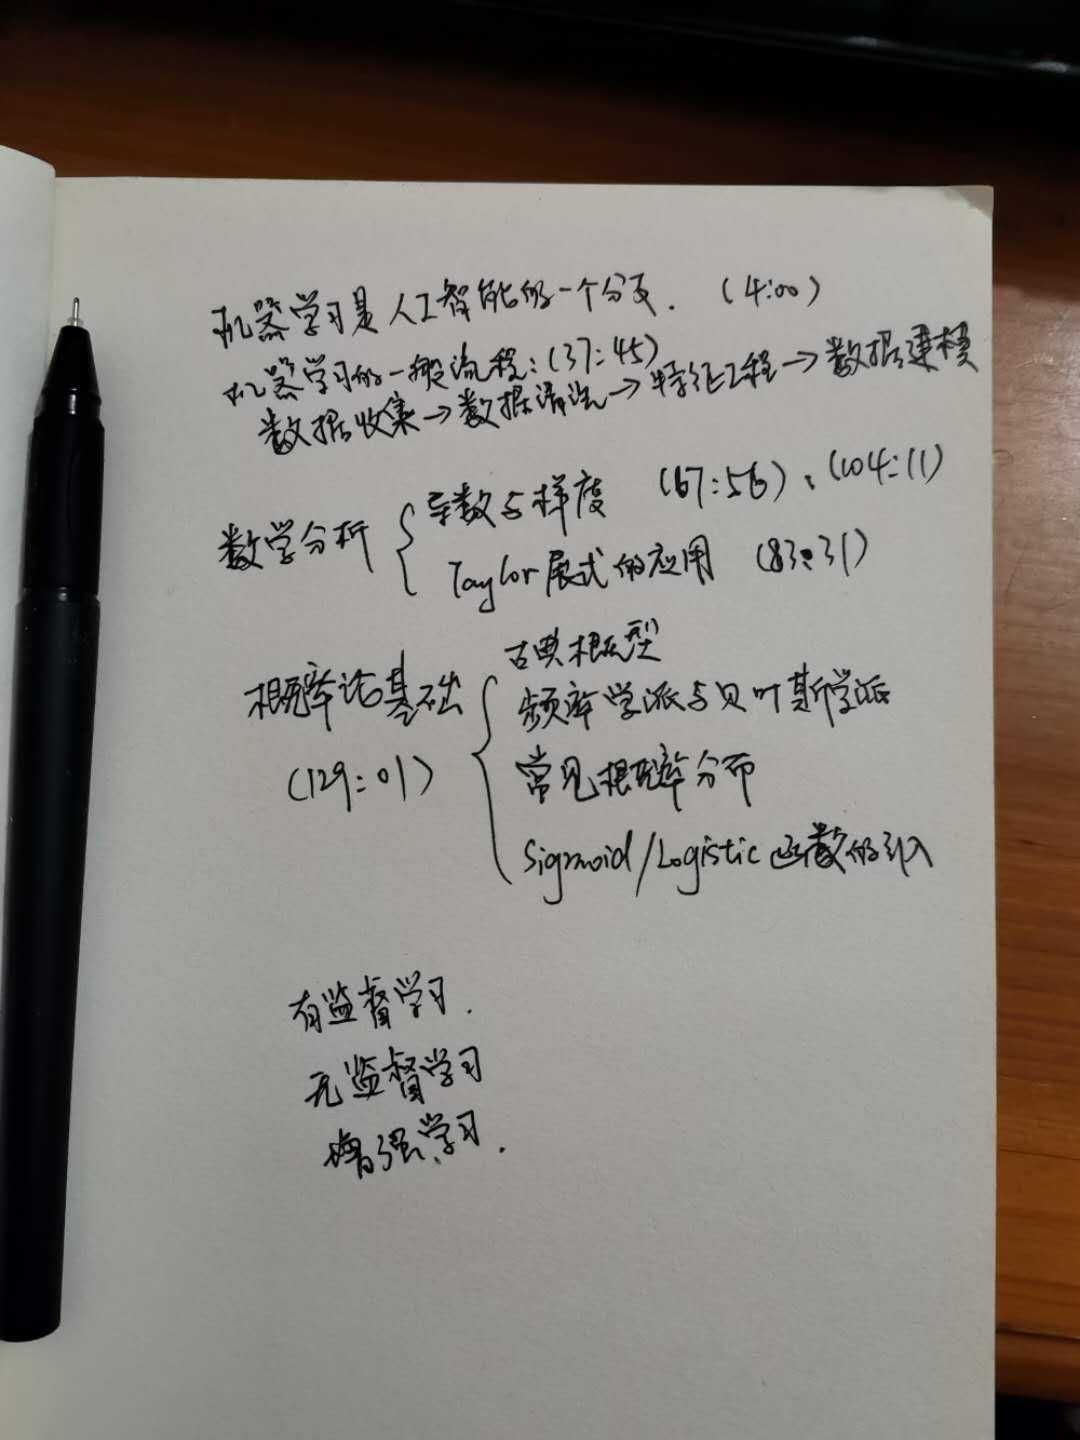 机器学习是人工智能的一个分支. (4:00)
机器学习的一般流程:(37:45)
数据收集→数据清洗→特征工程→数据建模
数学分析
导数与梯度 (67:56)、(104:11)
Taylor展式的应用 (83:31)
概率论基础
(129:01)
古典概型
频率学派与贝叶斯学派
常见概率分布
Sigmoid/Logistic 函数的引入
有监督学习.
无监督学习
增强学习.